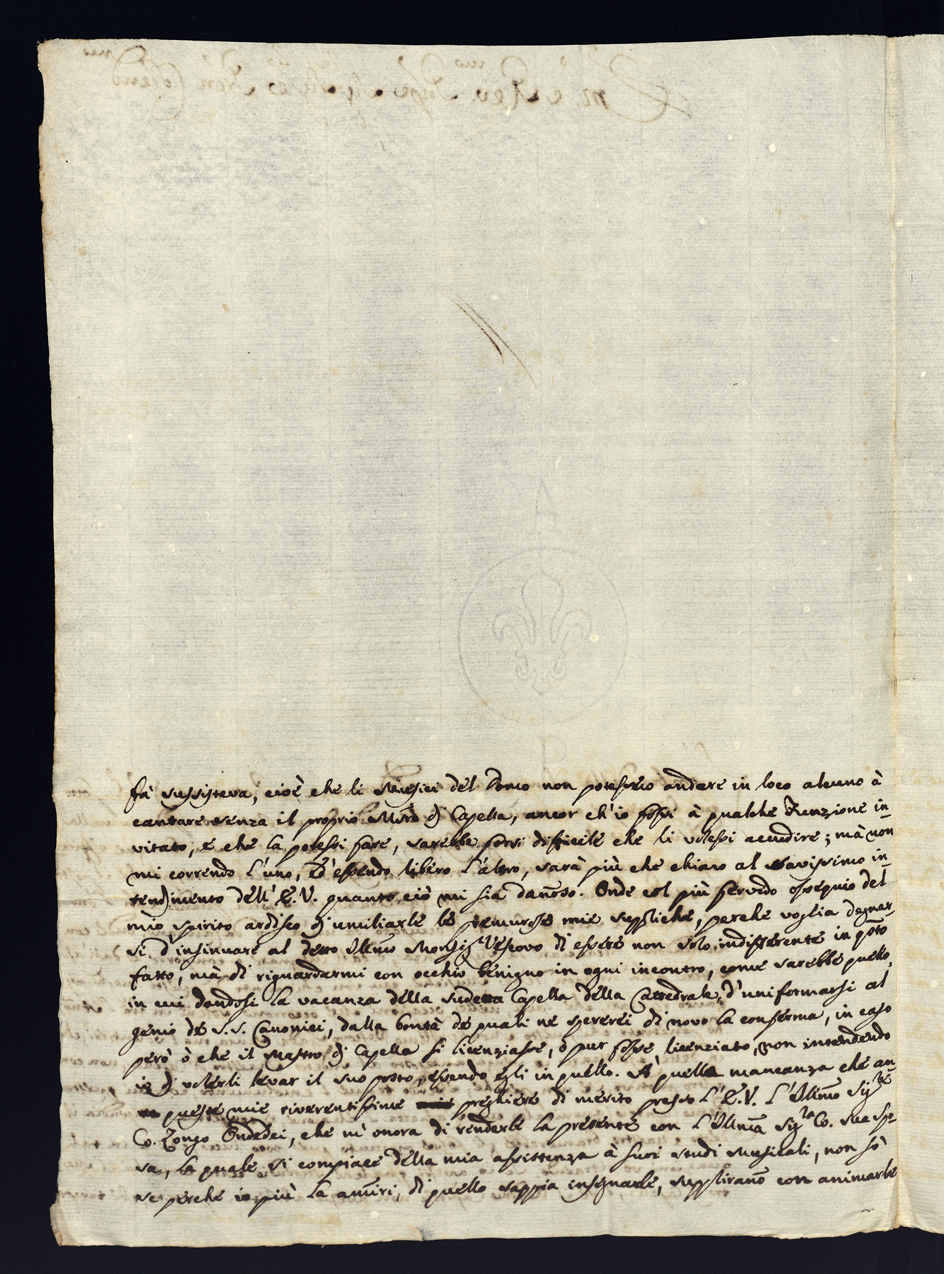 fà sussisteva, cioè che li Musici del Domo non potessero andare in loco alcuno à
cantare senza il proprio Mãro di Capella, ancor ch'io fossi à qualche Funzione in-
vitato, e che la potessi fare, sarebbe forsi difficile che li volessi accudire; mà non
mi correndo l'uno, ed essendo libero l'altro, sarà più che chiaro al savissimo in-
tendimento dell'E.V. quanto ciò mi sia dañoso. Onde col più fervido ossequio del
mio spirito ardisco di umiliarle le premurose mie suppliche, perche voglia degnar-
si d'insinuare al detto Illmo Monsigr Vescovo di essere non solo indifferente in qsto
fatto, mà di riguardarmi con occhio benigno in ogni incontro, come sarebbe quello,
in cui dandosi la vacanza della sudetta Capella della Cattedrale, d'uniformarsi al
genio de S.S. Canonici, dalla bontà de quali ne spererei di novo la conferma, in caso
però ò che il Mastro di Capella si licenziasse, ò pur fosse licenziato, non intendendo
io di volerli levar il suo posto, essendo egli in quello. A quella mancanza che an-
queste mie riverentissime preghiere di merito presso l'E.V. l'Illmo Sigre
Co. Zongo Ondedei, che m'onora di renderle la presente con l'Illma Sigra Co. sua Spo-
sa, la quale si compiace della mia assistenza à suoi studi Musicali, non sò
se perche io più la amiri, di quello sappia insegnarle, suppliranõ con animarle